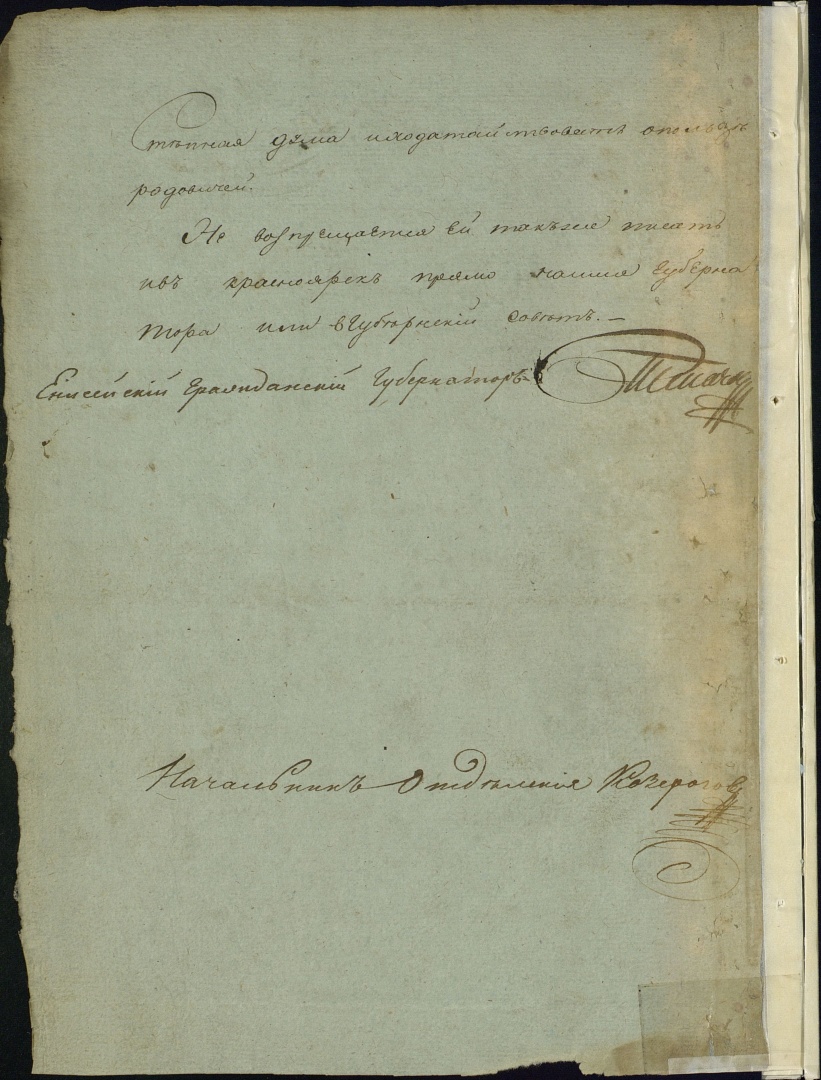 Степная дума и ходатайствовать о пользах
родовичей.
Не воспрещается ей также писать
и въ Красноярскъ прямо на имя Губерна
тора или в Губернский Советъ. —
Енисейский Гражданский Губернаторъ
Начальникъ Отделения Козероговъ